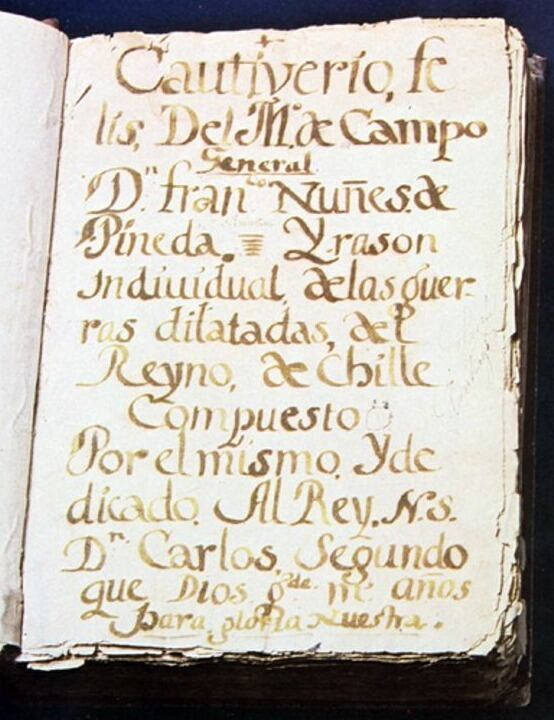 Cautiverio, fe
lis, Del Mº. de Campo
General
Dⁿ. franᶜᵒ Nuñes. de
Pineda. Y rason
indiuidual, de las guer-
ras dilatadas, del
Reyno, de Chille
Compuesto
Por el mismo, Y de
dicado. Al Rey. N. s.
Dⁿ. Carlos, Segundo
que Dios gᵈᵉ. mˢ. años
Para gloria Nuestra.